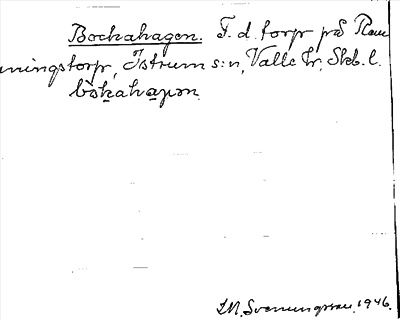 Bockahagen. F. d. torp på Ram
nningstorp, Istrum s:n, Valle hr, Skb. l.
bòkahàgən.
I.M. Svenungsson. 1946.